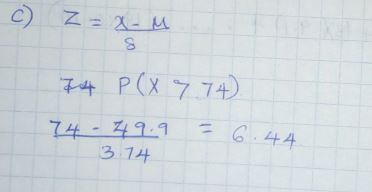 c) Z = x - μ / s
74 P(X > 74)
74 - 49.9 / 3.74 = 6.44